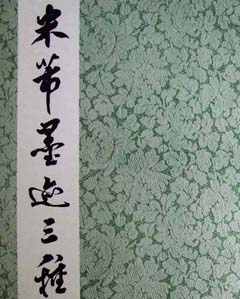 米芾墨迹三種